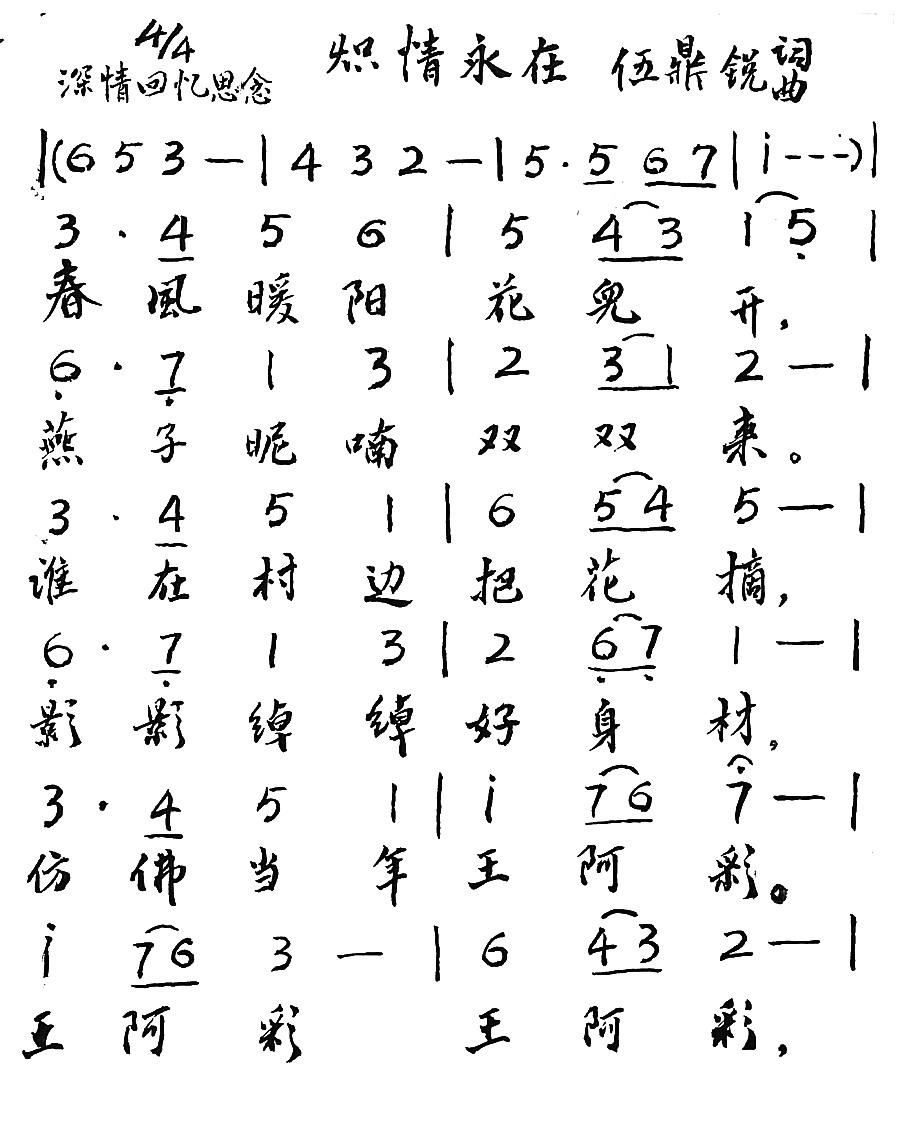 4/4 炽情永在 伍鼎锐 词曲
深情回忆思念
|(6 5 3 —| 4 3 2 —| 5 · 5 6 7 | i - - -)|
3 · 4 5 6 | 5 4 3 1 5 |
春風暖阳 花兒开,
6 · 7 1 3 | 2 3 1 2 — |
燕子昵喃 双双来。
3 · 4 5 1 | 6 5 4 5 — |
谁在村边 把花摘,
6 · 7 1 3 | 2 6 7 1 — |
影影绰绰 好身材,
3 · 4 5 1 | i 7 6 7 — |
仿佛当年 王阿彩。
i 7 6 3 — | 6 4 3 2 — |
王阿彩 王阿彩,